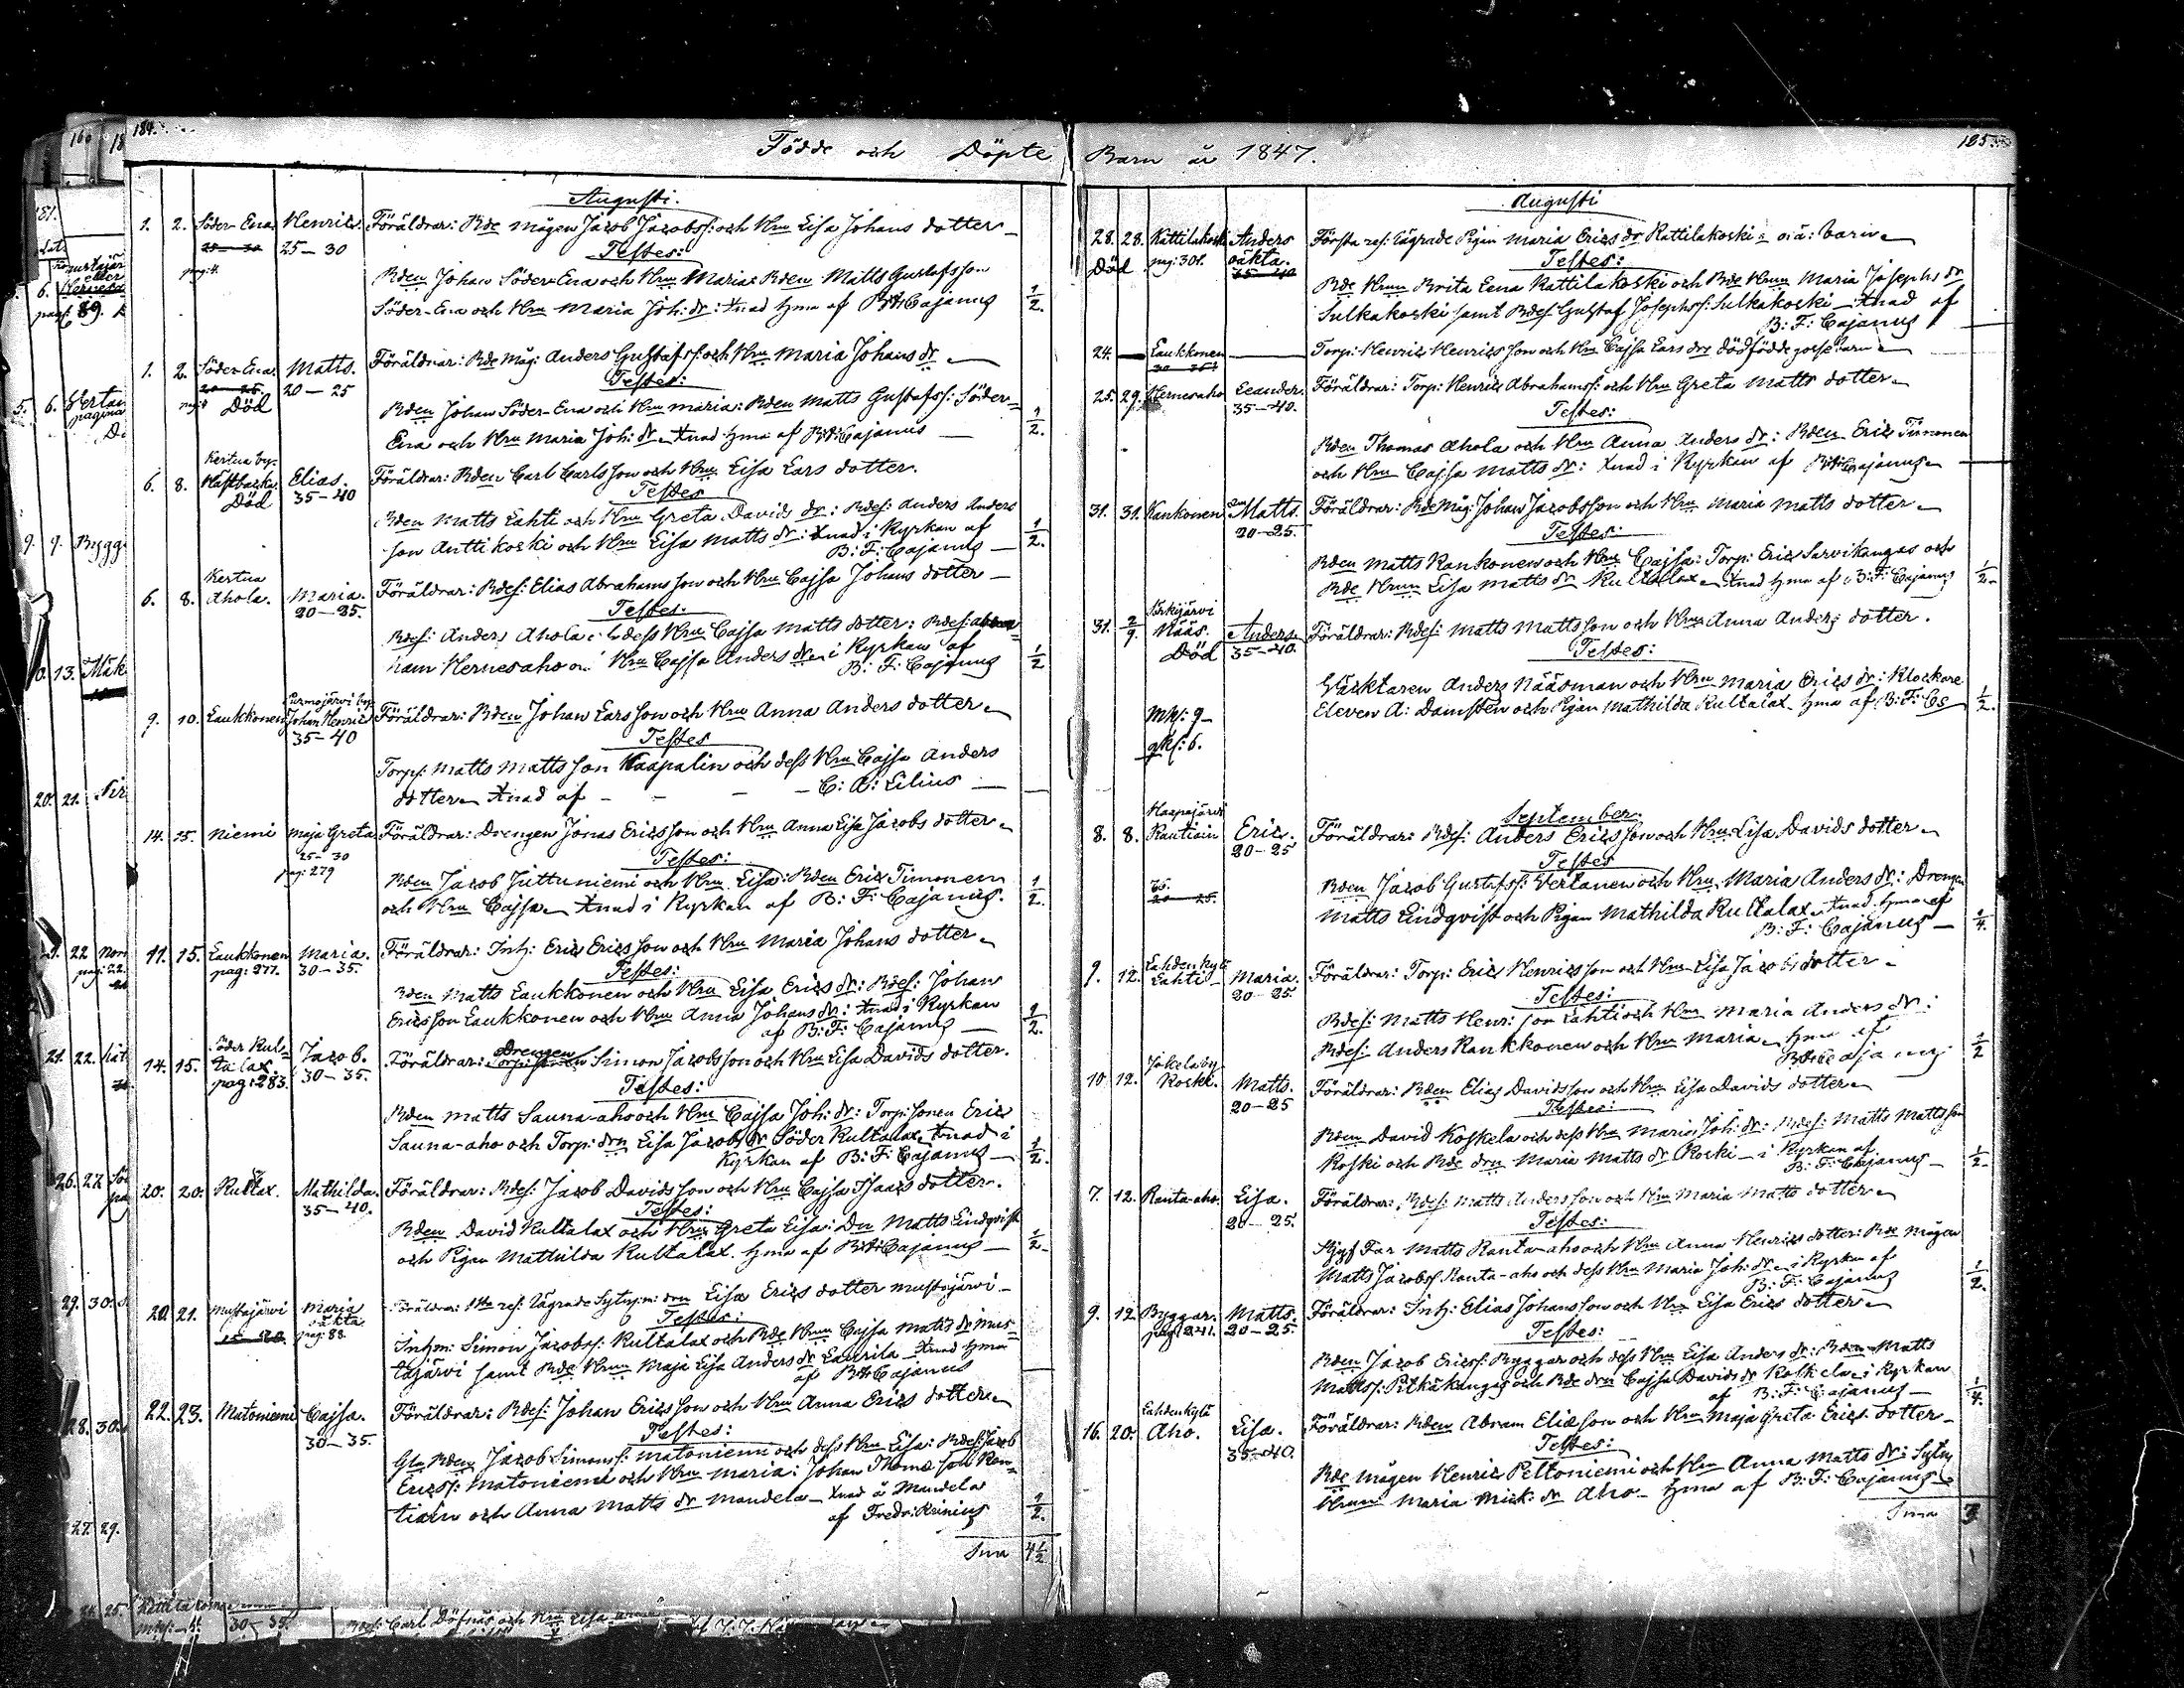 184.
Födde och Döpte
Augusti.
1. 2. Söder-Ena Henric. Föräldrar: Bde mågen Jacob Jacobss: och Hru Lisa Johans dotter
25-30
Testes:
pag: 4.
Bden Johan Söder-Ena och Hru Maria: Bden Matts Gustafsson
Söder-Ena och Hru Maria Joh: dr: Xnad hma af B:F: Cajanus 1/2.
1. 2. Söder-Ena. Matts. Föräldrar: Bde Måg: Anders Gustafss: och Hru Maria Johans dr
20-25 20-25 Testes:
Död
Bden Johan Söder-Ena och Hru Maria: Bden Matts Gustafss: Söder-
Ena och Hru Maria Joh: dr Xnad hma af B:F: Cajanus 1/2.
Kertua by.
6. 8. Elias. Föräldrar: Bden Carl Carlsson och Hru Lisa Lars dotter.
Död 35-40 Testes
Bden Matts Lahti och Hru Greta Davids dr: Bdes: Anders Anders
son Anttikoski och Hru Lisa Matts dr: Xnad i Kyrkan af
B: F: Cajanus 1/2.
Kertua
6. 8. Ahola. Maria. Föräldrar: Bdes: Elias Abrahamsson och Hru Cajsa Johans dotter
20-25. Testes:
Bdes: Anders Ahola och dess Hru Cajsa Matts dotter: Bdes: Abra-
ham Hernesaho och Hru Cajsa Anders dr i Kyrkan af
B: F: Cajanus 1/2
Purmojärvi by.
9. 10. Laukkonen Johan Henric Föräldrar: Bden Johan Larsson och Hru Anna Anders dotter
35-40 Testes
Torp: Matts Mattsson Haapalin och dess Hru Cajsa Anders
dotter Xnad af - - - C: A: Lilius
14. 25. Niemi Maja Greta Föräldrar: Drengen Jonas Ericsson och Hru Anna Lisa Jacobs dotter
25-30
pag: 279 Testes:
Bden Jacob Juttuniemi och Hru Lisa: Bden Eric Timonen
och Hru Cajsa Xnad i Kyrkan af B: F: Cajanus. 1/2.
11. 15. Laukkonen Maria. Föräldrar: Inh: Eric Ericsson och Hru Maria Johans dotter
pag: 277. 30-35. Testes:
Bden Matts Laukkonen och Hru Lisa Erics dr: Bdes: Johan
Ericsson Laukkonen och Hru Anna Johans dr: Xnad i Kyrkan
af B: F: Cajanus 1/2.
Söder Kul-
14. 15. talax. Jacob. Föräldrar: Drengen Simon Jacobsson och Hru Lisa Davids dotter.
pag: 283. 30-35. Testes:
Bden Matts Sauna-aho och Hru Cajsa Joh: dr: Torp: sonen Eric
Sauna-aho och Torp: drn Lisa Jacobs dr Söder Kultalax Xnad i
Kyrkan af B: F: Cajanus 1/2.
20. 20. Kultax. Mathilda. Föräldrar: Bdes: Jacob Davidsson och Hru Cajsa Isaacs dotter.
35-40. Testes:
Bden David Kultalax och Hru Greta Lisa: Dr Matts Lindqvist
och Pigan Mathilda Kultalax. hma af B:F: Cajanus 1/2.
20. 21. Mustajärvi Maria oäkta. Föräldrar: 1sta res. lägrade Sytnj:m: drn Lisa Erics dotter Mustajärvi
pag: 88. Testes:
Inhm: Simon Jacobss: Kultalax och Bde Hrun Cajsa Matts dr Mus-
tajärvi samt Bde Hrun Maja Lisa Anders dr Laurila Xnad hma
af B:F: Cajanus
22. 23. Matoniemi Cajsa. Föräldrar: Bdes: Johan Ericsson och Hru Anna Erics dotter
30-35. Testes:
Gla Bden Jacob Simonss: Matoniemi och dess Hru Lisa: Bdes: Jacob
Ericss: Matoniemi och Hru Maria: Johan Thomæ son Ran-
tiain och Anna Matts dr Mandela Xnad å Mandela
af Fredr: Reinius 1/2.
Sma 4 1/2
185
Barn år 1847.
Augusti
28. 28. Kattilakoski Anders Första res: lägrade Pigan Maria Erics dr Kattilakoski: o: ä: barn
Död pag: 301. oäkta. Testes:
35-40
Bde Hrun Brita Lena Kattilakoski och Bde Hrun Maria Josephs dr
Sulkakoski samt Bdes: Gustaf Josephss: Sulkakoski Xnad af
B: F: Cajanus
24. Laukkonen Torp: Henric Henricsson och Hru Cajsa Lars drs dödfödde gosse barn
25. 29. Hernesaho Leander. Föräldrar: Torp: Henric Abrahamss: och Hru Greta Matts dotter
35-40. Testes:
Bden Thomas Ahola och Hru Anna Anders dr: Bden Eric Timonen
och Hru Cajsa Matts dr: Xnad i Kyrkan af B:F: Cajanus
31. 31. Kankonen Matts. Föräldrar: Bde Måg: Johan Jacobsson och Hru Maria Matts dotter
20-25. Testes:
Bden Matts Kankonen och Hru Cajsa: Torp: Eric Sarvikangas och
Bde Hrun Lisa Matts dr Kultalax Xnad hma af B: F: Cajanus 1/2.
31. 2/9. Nääs. Anders. Föräldrar: Bdes: Matts Mattsson och Hru Anna Anders dotter.
Död 35-40. Testes:
Wäcktaren Anders Nääsman och Hru Maria Erics dr: Klockare
Eleven A: Damsten och Pigan Mathilda Kultalax. hma af B: F: Cs 1/2.
Mk: 9
qk: 6.
September.
Haapajärvi
8. 8. Rantiain Eric. Föräldrar: Bdes: Anders Ericsson och Hru Lisa Davids dotter
20-25 Testes
20-25.
Bden Jacob Gustafss: Vertanen och Hru Maria Anders dr: Drengen
Matts Lindqvist och Pigan Mathilda Kultalax Xnad hma af
B: F: Cajanus 1/4.
Lahdenkylä
9. 12. Lahti Maria. Föräldrar: Torp: Eric Henricsson och Hru Lisa Jacobs dotter
20-25. Testes:
Bdes: Matts Henr: son Lahti och Hru Maria Anders dr:
Bdes: Anders Kankkonen och Hru Maria hma af
B:F: Cajanus 1/2
Jokela by
10. 12. Koski. Matts. Föräldrar: Bden Elias Davidsson och Hru Lisa Davids dotter
20-25 Testes:
Bden David Koskela och dess Hru Maria Joh: dr: Bdes: Matts Mattsson
Koski och Bde drn Maria Matts dr Koski i Kyrkan af
B: F: Cajanus 1/2.
7. 12. Ranta-aho. Lisa. Föräldrar: Bdes: Matts Andersson och Hru Maria Matts dotter
20-25. Testes:
Far Matts Ranta-aho och Hru Anna Henrics dotter: Bde mågen
Matts Jacobss: Ranta-aho och dess Hru Maria Joh: dr i Kyrkan af
B: F: Cajanus 1/2.
9. 12. Byggar. Matts. Föräldrar: Inh: Elias Johansson och Hru Lisa Erics dotter
pag 241. 20-25. Testes:
Bden Jacob Ericss: Byggar och dess Hru Lisa Anders dr: Bden Matts
Mattss: Pitkäkangas och Bde drn Cajsa Davids dr Koskela i Kyrkan
af B: F: Cajanus 1/4.
Lahdenkylä
16. 20. Aho. Lisa. Föräldrar: Bden Abram Eliæson och Hru Maja Greta Erics dotter
35-40. Testes:
Bde mågen Henric Peltoniemi och Hru Anna Matts dr: Sytn
Hrun Maria Mick: dr Aho. hma af B: F: Cajanus
Sma 3